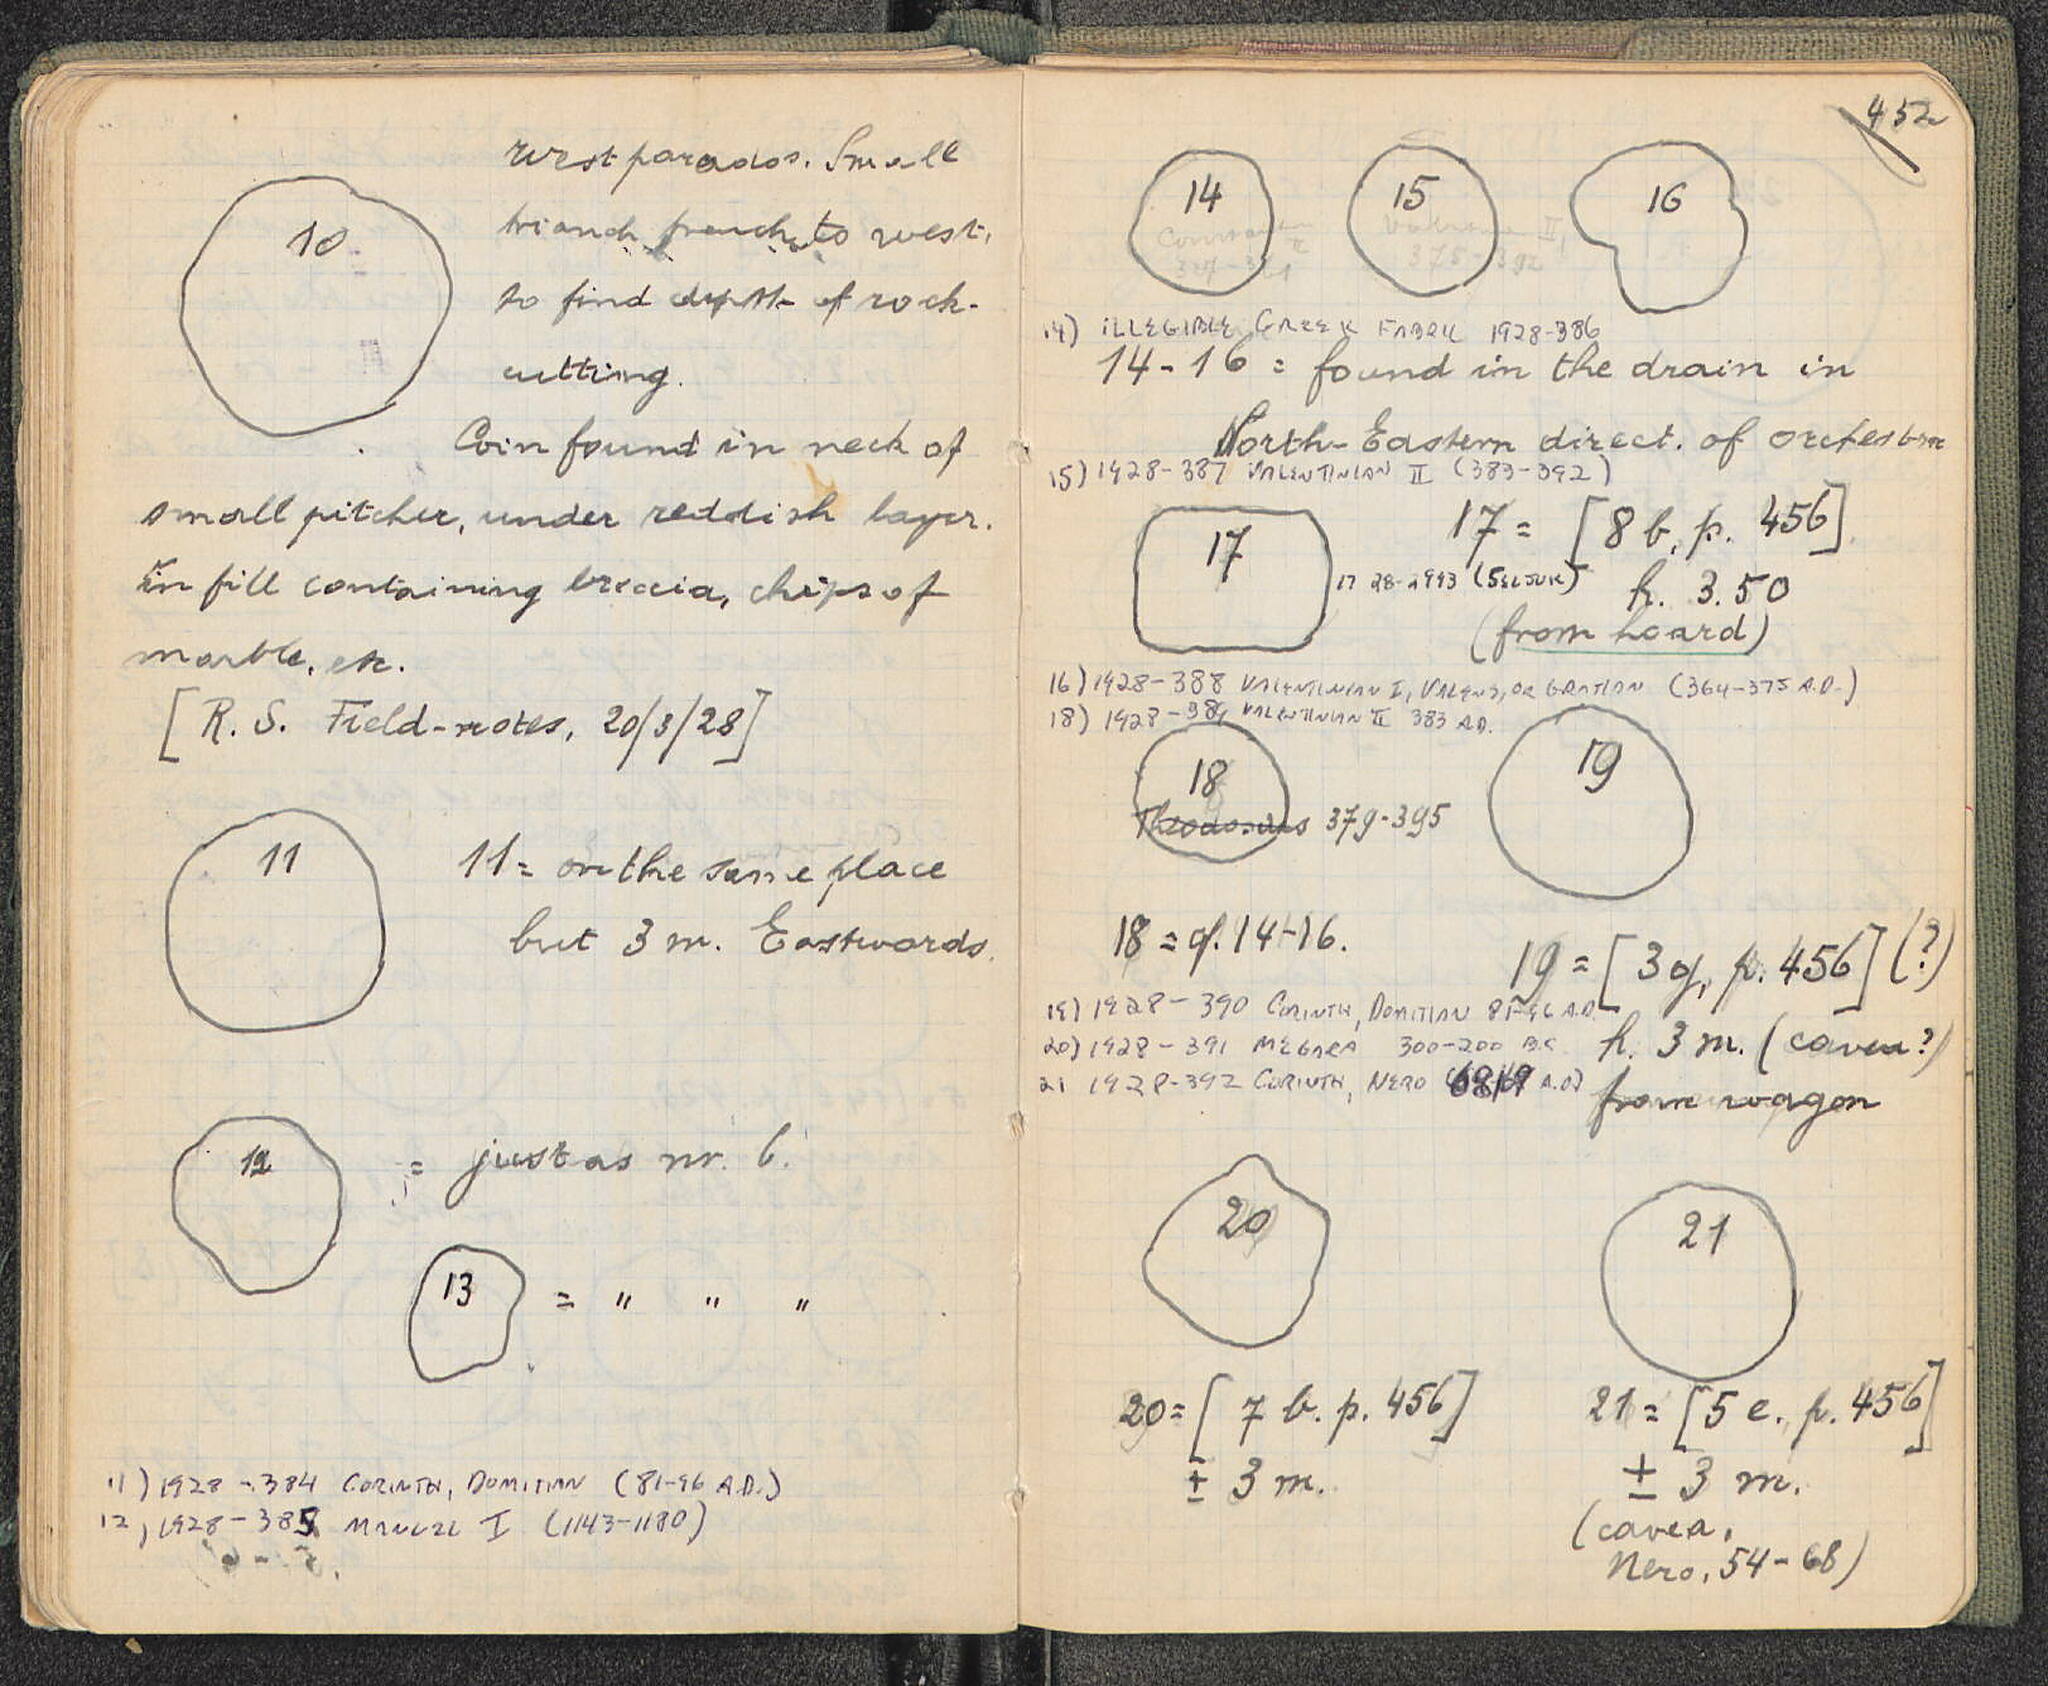 10
west parados. Small
trench to west,
to find depth of rock-
cutting.
Coin found in neck of
small pitcher, under reddish layer.
in fill containing breccia, chips of
marble, etc.
[R. S. Field-notes, 20/3/28]
11
11 = on the same place
but 3 m. Eastwards.
12 = just as nr. 6.
13 = " " "
11) 1928-384 CORINTH, DOMITIAN (81-96 A.D.)
12) 1928-385 MANUEL I (1143-1180)
452
14 15 16
375-392
14) ILLEGIBLE GREEK FABRIC 1928-386
14-16 = found in the drain in
North-Eastern direct. of orchestra
15) 1928-387 VALENTINIAN II (383-392)
17
17 = [8 b, p. 456]
17 28-2993 (SELJUK) h. 3.50
(from hoard)
16) 1928-388 VALENTINIAN I, VALENS, OR GRATIAN (364-375 A.D.)
18) 1928-389 VALENTINIAN II 383 A.D.
18 19
Theodosius 379-395
18 = cf. 14-16.
19 = [3 g, p. 456] (?)
19) 1928-390 CORINTH, DOMITIAN 81-96 A.D.
20) 1928-391 MEGARA 300-200 B.C. h. 3 m. (cavea?)
21 1928-392 CORINTH, NERO A.D) from wagon
20 21
20 = [7 b. p. 456] 21 = [5 e., p. 456]
± 3 m. ± 3 m.
(cavea,
Nero, 54-68)